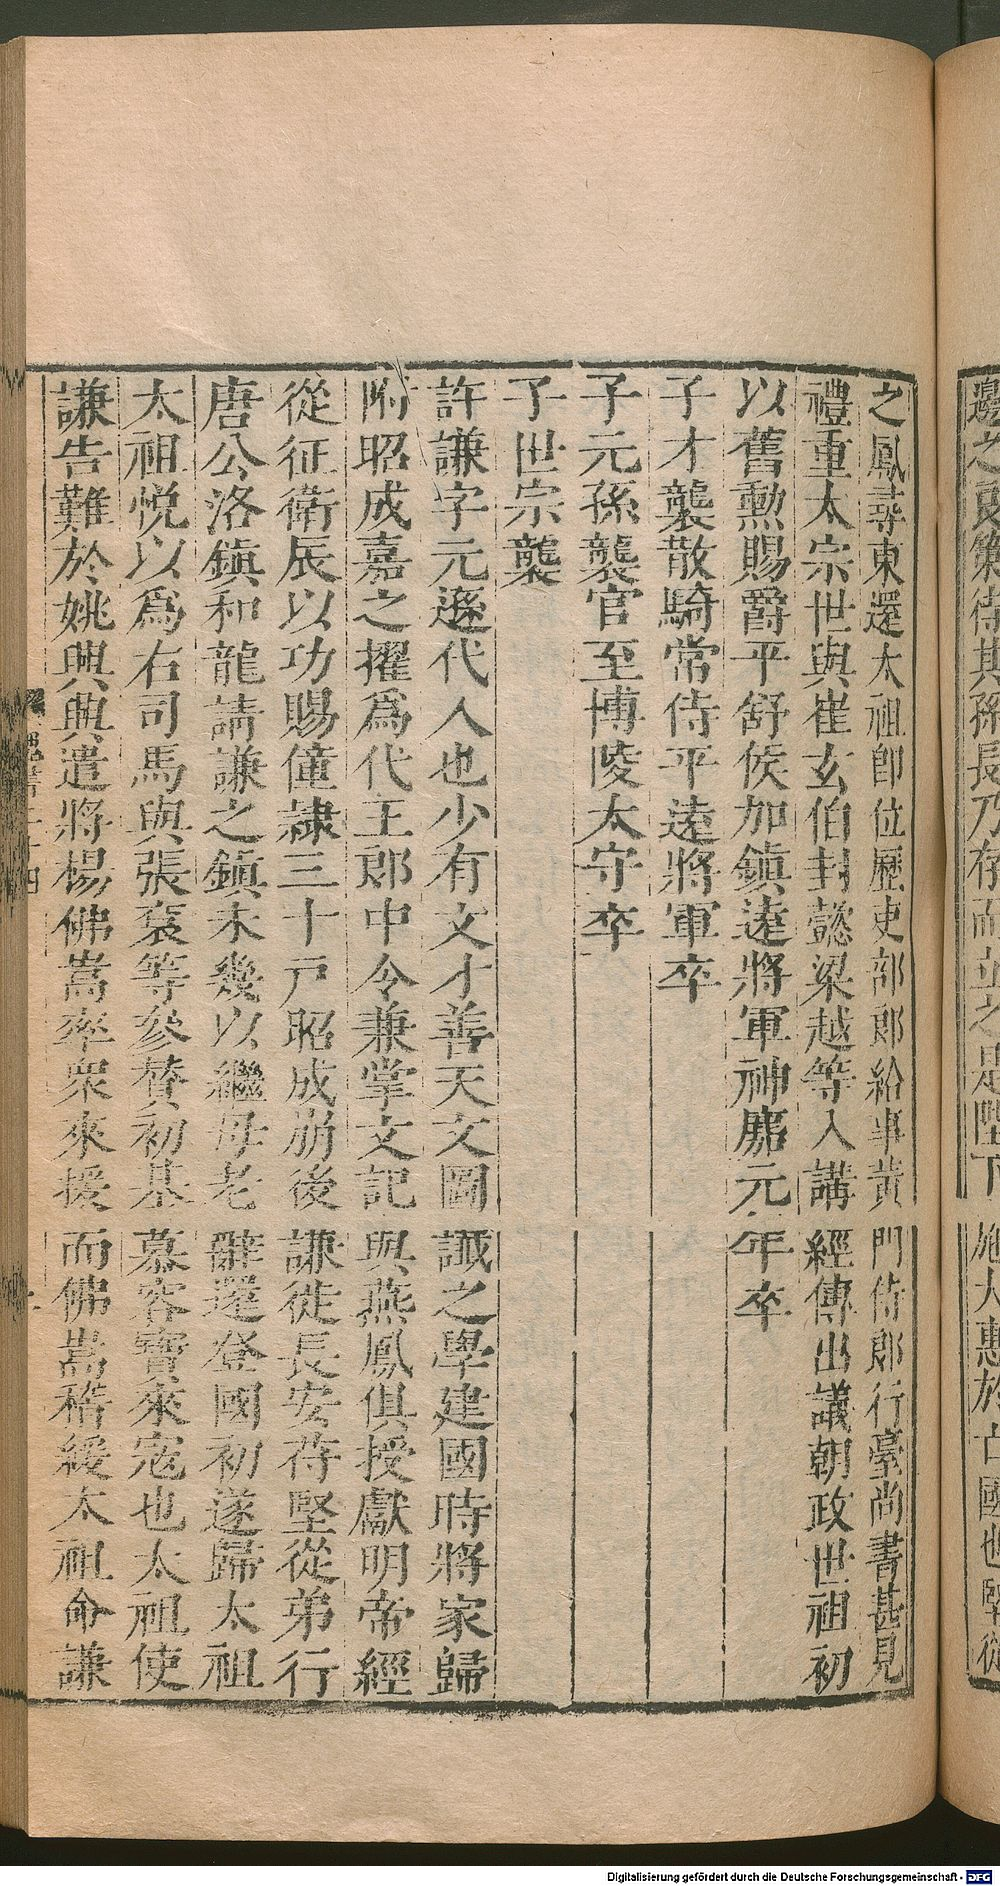 之鳳尋東還太祖即位歷吏部郎給事黄門侍郎行臺尚書甚見
禮重太宗世與崔玄伯封懿梁越等入講經傳出議朝政世祖初
以舊勲賜爵平舒侯加鎮遠將軍神䴥元年卒
子才襲散騎常侍平遠將軍卒
子元孫襲官至博陵太守卒
子世宗襲
許謙字元遜代人也少有文才善天文圖讖之學建國時將家歸
附昭成嘉之擢爲代王郎中令兼掌文記與燕鳳俱授獻明帝經
從征衛辰以功賜僮隷三十戸昭成崩後謙徙長安苻堅從弟行
唐公洛鎮和龍請謙之鎮未幾以繼母老辭還登國初遂歸太祖
太祖悦以爲右司馬與張衮等參賛初基慕容寶來寇也太祖使
謙告難於姚興興遣將楊佛嵩率衆來援而佛嵩稽緩太祖命謙
Digitalisierung gefördert durch die Deutsche Forschungsgemeinschaft - DFG